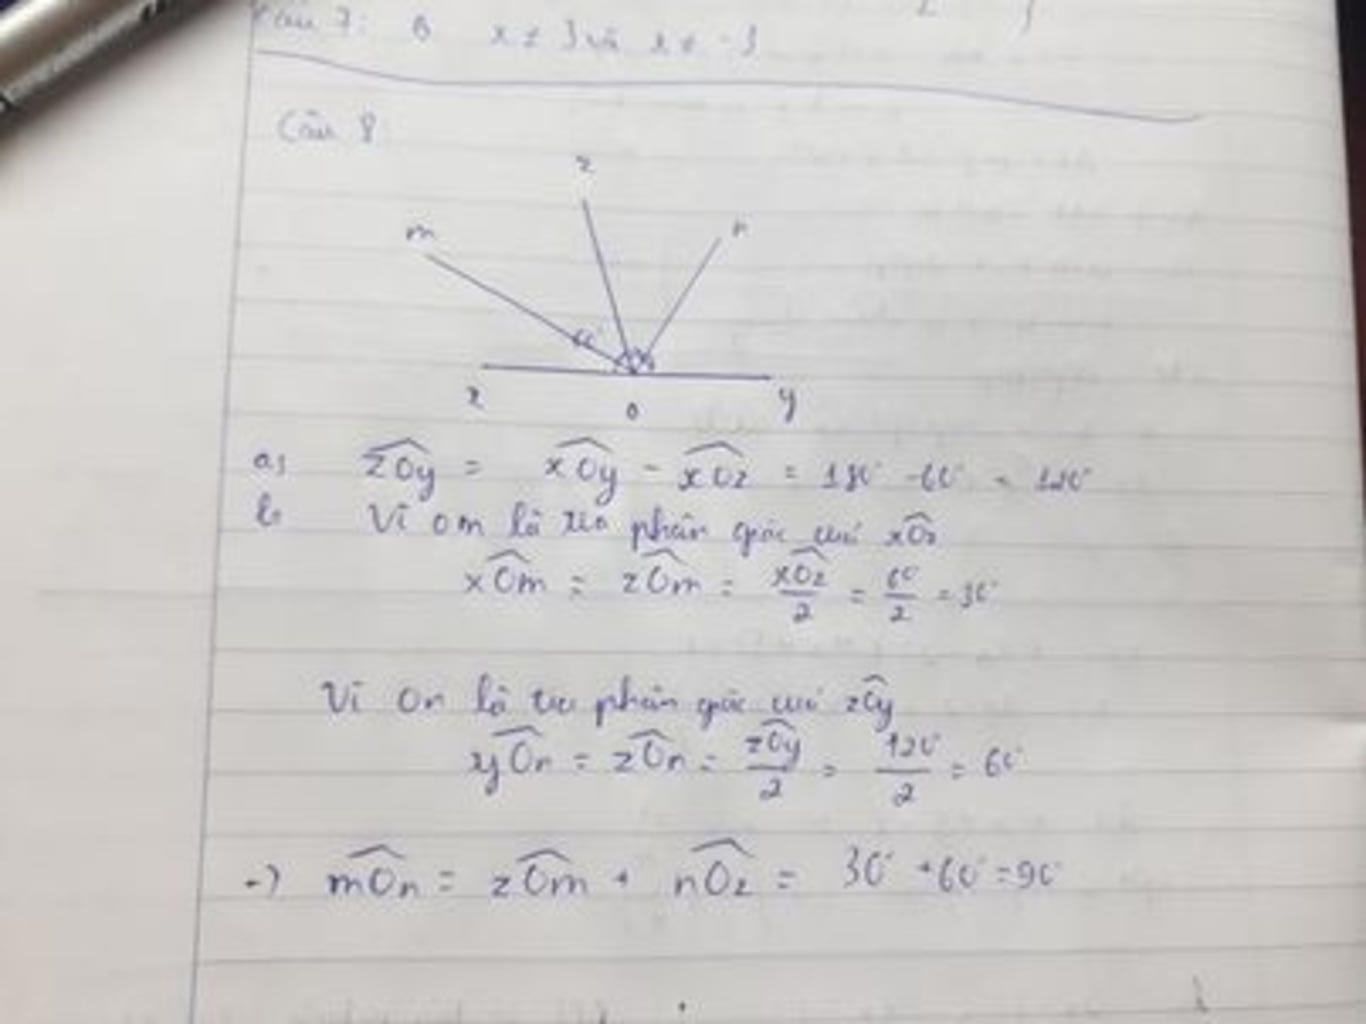 Câu 7: B x ≠ 3 và x ≠ -3
Câu 8
z
m
n
60°
x
O
y
a) zOy = xOy - xOz = 180° - 60° = 120°
b. Vì Om là tia phân giác của xOz
xOm = zOm = xOz/2 = 60/2 = 30°
Vì On là tia phân giác của zOy
yOn = zOn = zOy/2 = 120°/2 = 60°
-) mOn = zOm + nOz = 30° + 60° = 90°